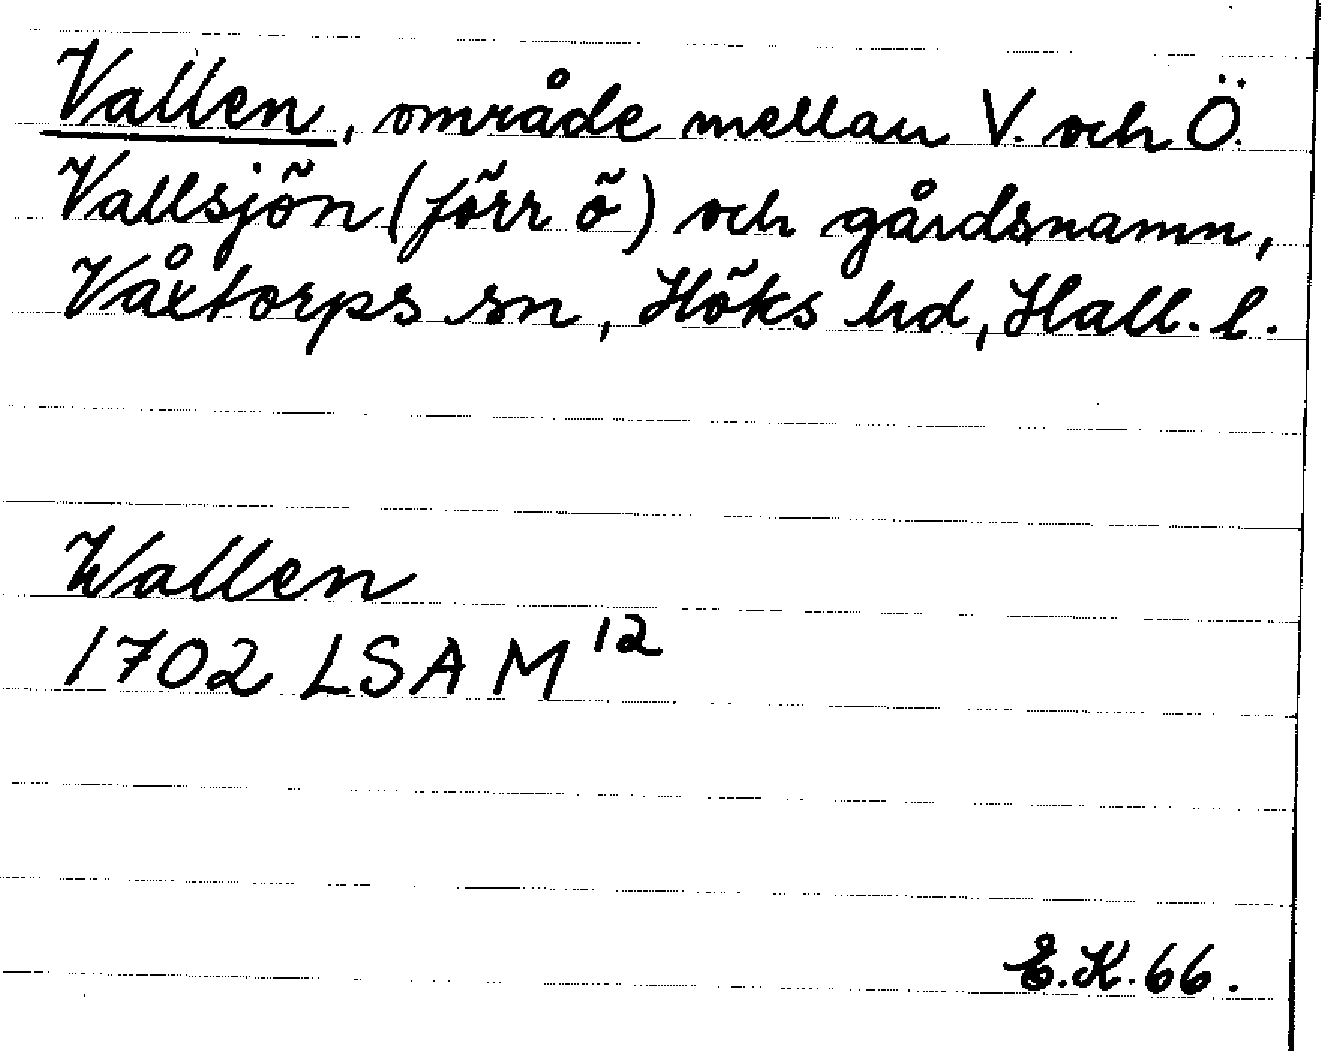 Vallen, område mellan V. och Ö.
Vallsjön (förr ö) och gårdsnamn,
Våxtorps sn, Höks hd, Hall. l.
Wallen
1702 LSA M 12
E.K. 66.